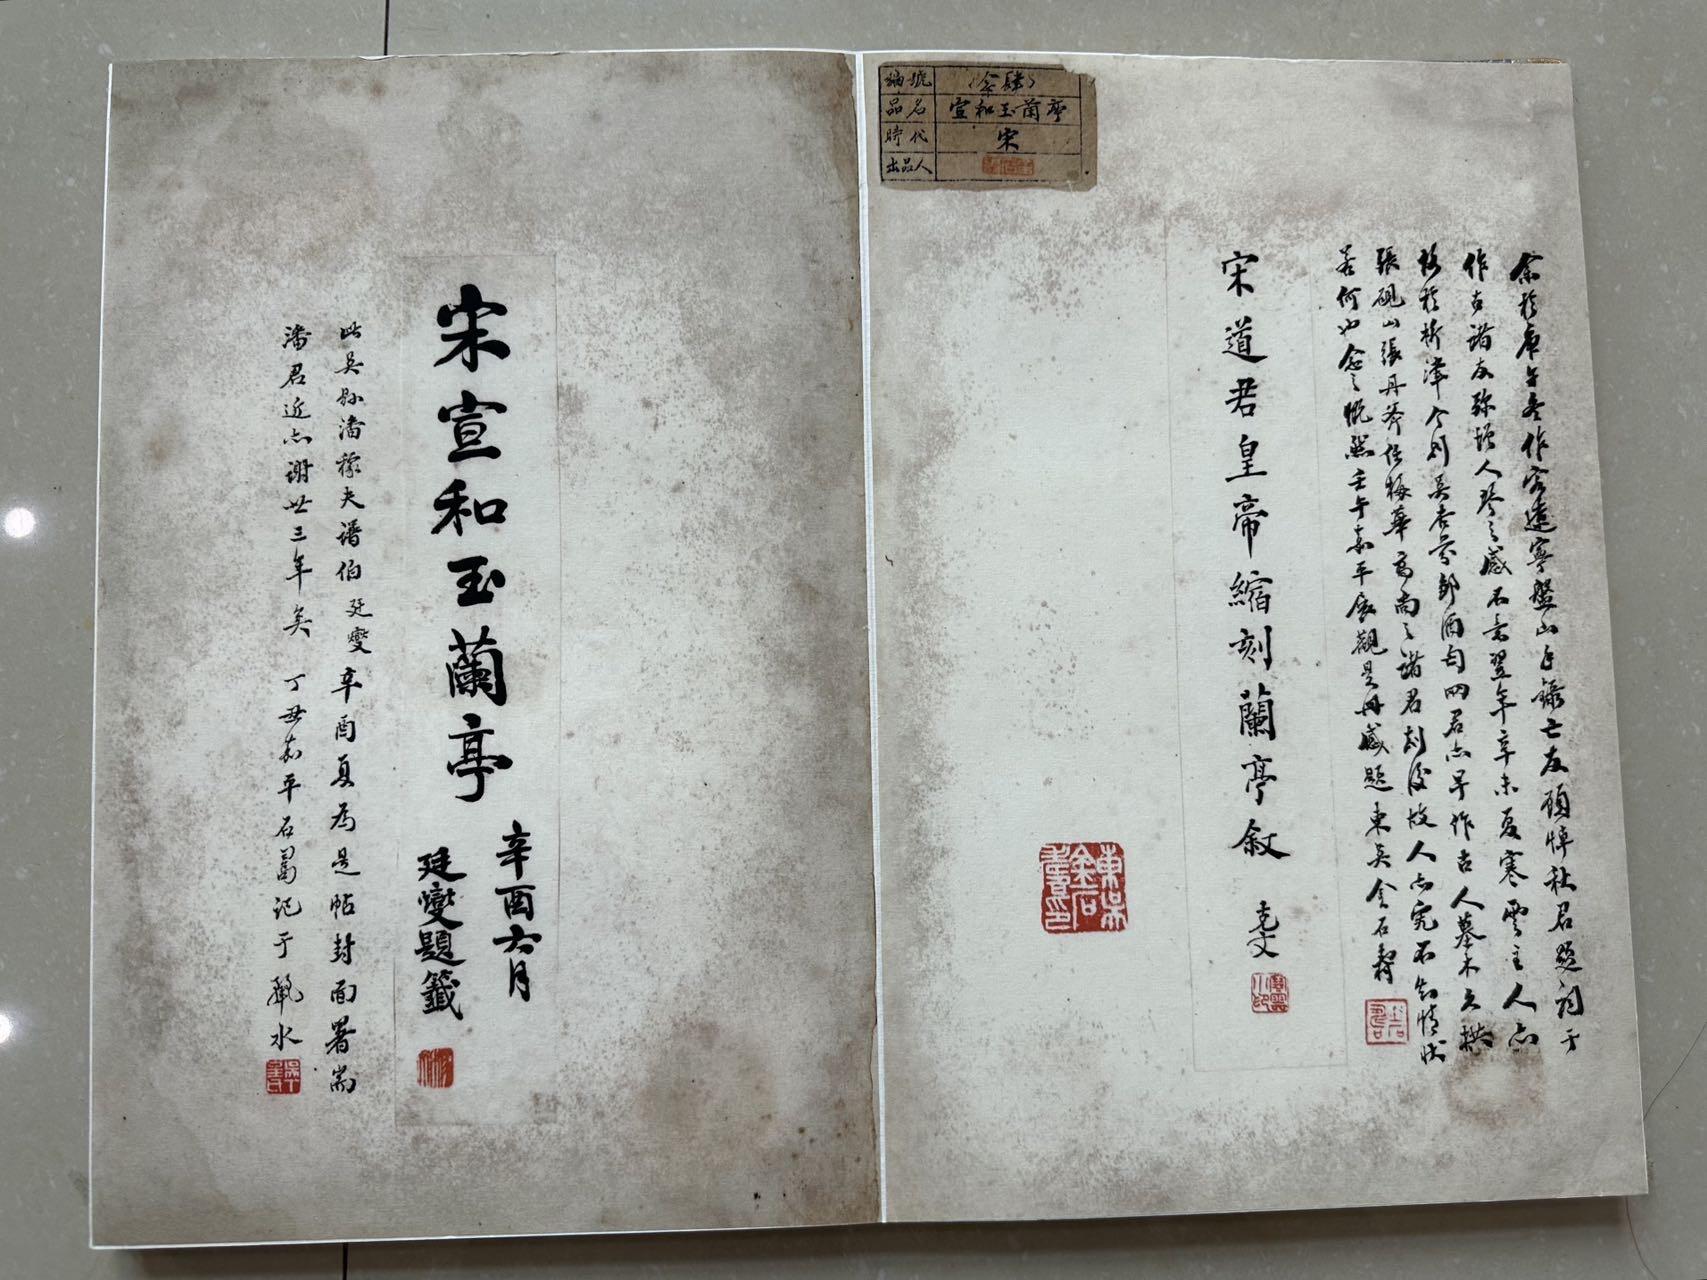 編號 （叁肆）
品名 宣和玉蘭亭
時代 宋
出品人
余於庚午冬作客遼寧盤山手錄亡友顧悼秋君題詞于
作古諸友弥增人琴之感不意翌年辛未夏寒雲主人亦
於析津今則吳杏芬鄒酒匄四君亦早作古人墓木已拱
張硯山張丹斧任梅華高南之諸君別後故人亦究不知情狀
若何也念之慨然壬午嘉平展觀是冊感題東吳金石壽
宋道君皇帝縮刻蘭亭敘
克文
東吳金石壽印
宋宣和玉蘭亭
辛酉六月
廷燮題籤
此吳縣潘稼夫譜伯廷燮辛酉夏為是帖封面署耑
潘君近亦謝世三年矣 丁丑嘉平石蔔記于水